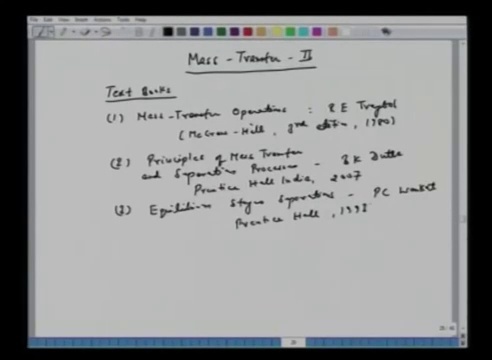 Mass - Transfer - II
Text Books
(1) Mass-Transfer Operations : R E Treybal
(McGraw-Hill, 3rd edition, 1980)
(2) Principles of Mass Transfer
and Separation Processes - B K Dutta
Prentice Hall India, 2007
(3) Equilibrium Stages Separations - PC Wankat
Prentice Hall, 1993